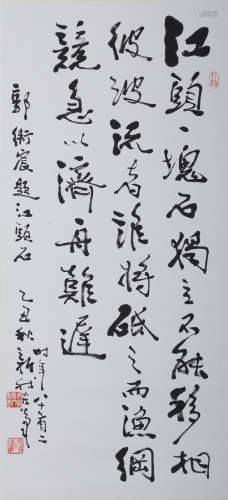 江頭一塊石獨立不能移相
彼波流者誰將砥之而漁網
競急以濟舟難遲
郭術宸題江頭石
乙丑秋
時年八十有二